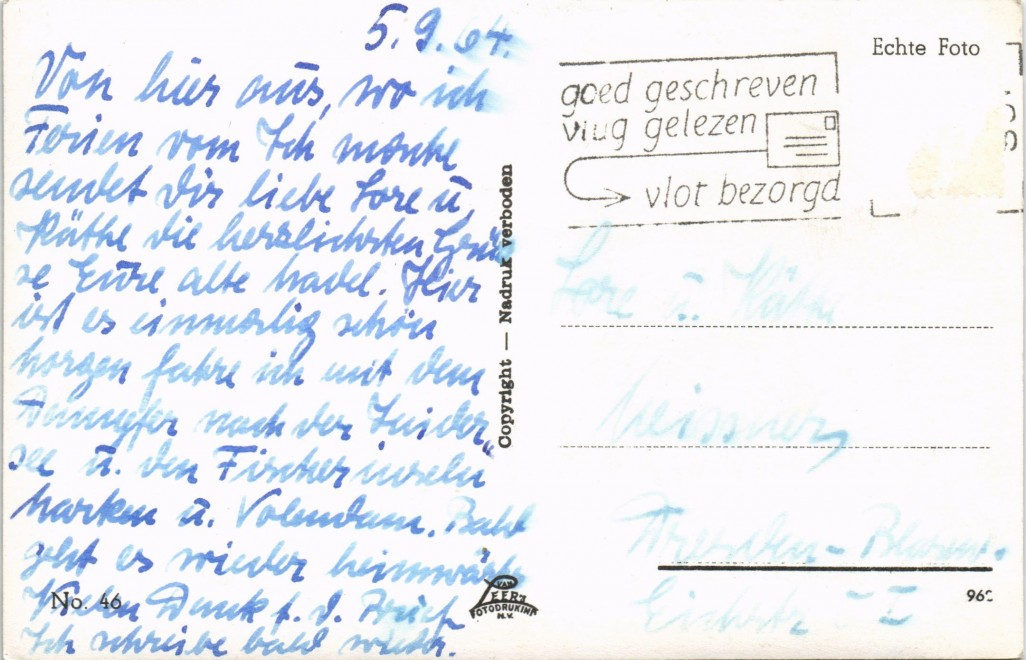 5.9.64.
Von hier aus, wo ich
Ferien vom Ich mache
sendet Dir liebe Lore u.
Käthe die herzlichsten Grüs
se Eure alte Madel. Hier
ist es einmalig schön
Morgen fahre ich mit dem
Dampfer nach der Zuider„
see u. den Fischerinseln
Marken u. Volendam. Bald
geht es wieder heimwärts
Vielen Dank f. d. Brief
Ich schreibe bald wieder.
No. 46
Copyright — Nadruk verboden
VAN
LEER'S
FOTODRUKIND.
N.V.
Echte Foto
goed geschreven
vlug gelezen
vlot bezorgd
Lore u. Käthe
Meissner
Dresden -
96